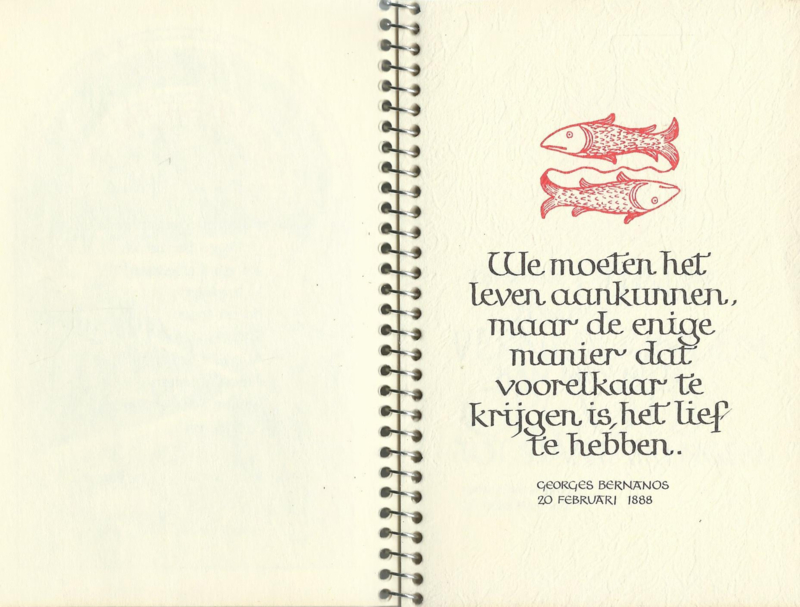 We moeten het
leven aankunnen,
maar de enige
manier dat
voorelkaar te
krijgen is, het lief
te hebben.
GEORGES BERNANOS
20 FEBRUARI 1888